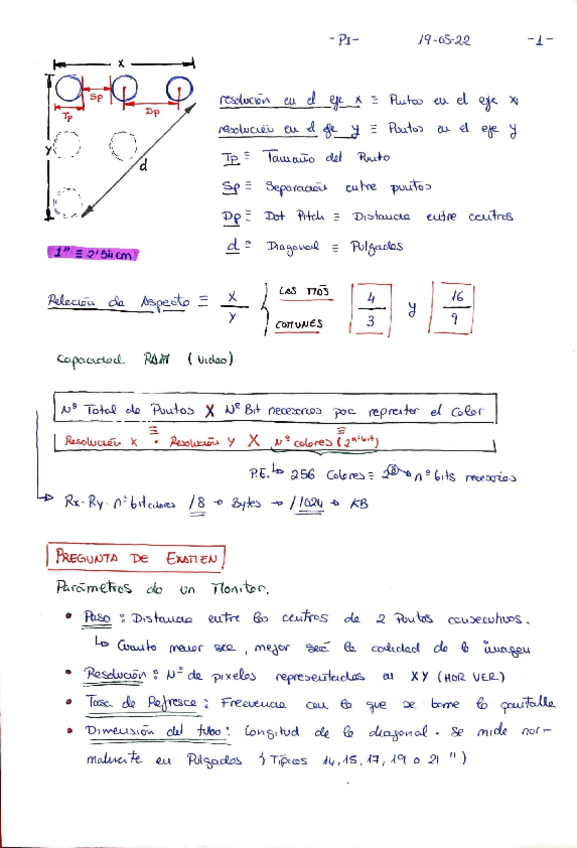 -PI- 19-05-22 -1-
x
Sp
Tp
Dp
y
d
resolución en el eje x ≡ Puntos en el eje x
resolución en el eje y ≡ Puntos en el eje y
Tp ≡ Tamaño del Punto
Sp ≡ Separación entre puntos
Dp ≡ Dot Pitch ≡ Distancia entre centros
d ≡ Diagonal ≡ Pulgadas
1" ≡ 2'54cm
Relación de Aspecto ≡ X/Y { LAS MÁS COMUNES 4/3 y 16/9
Capacidad RAM (Video)
Nº Total de Puntos X Nº Bit necesarios para represter el color
Resolución x · Resolución Y X Nº colores (2^nºbit)
P.E. ↳ 256 Colores ≡ 2^8 → nº bits necesarios
Rx·Ry·nºbit colores /8 → Bytes → /1024 → KB
PREGUNTA DE EXAMEN
Parámetros de un Monitor.
• Paso: Distancia entre los centros de 2 Puntos consecutivos.
↳ Cuanto menor sea, mejor será la calidad de la imagen
• Resolución: Nº de pixeles representados al XY (HOR VER)
• Tasa de Refresco: Frecuencia con la que se
• Dimensión del tubo: Longitud de la diagonal. Se mide nor-
malmente en Pulgadas (Típicos 14, 15, 17, 19 o 21 ")